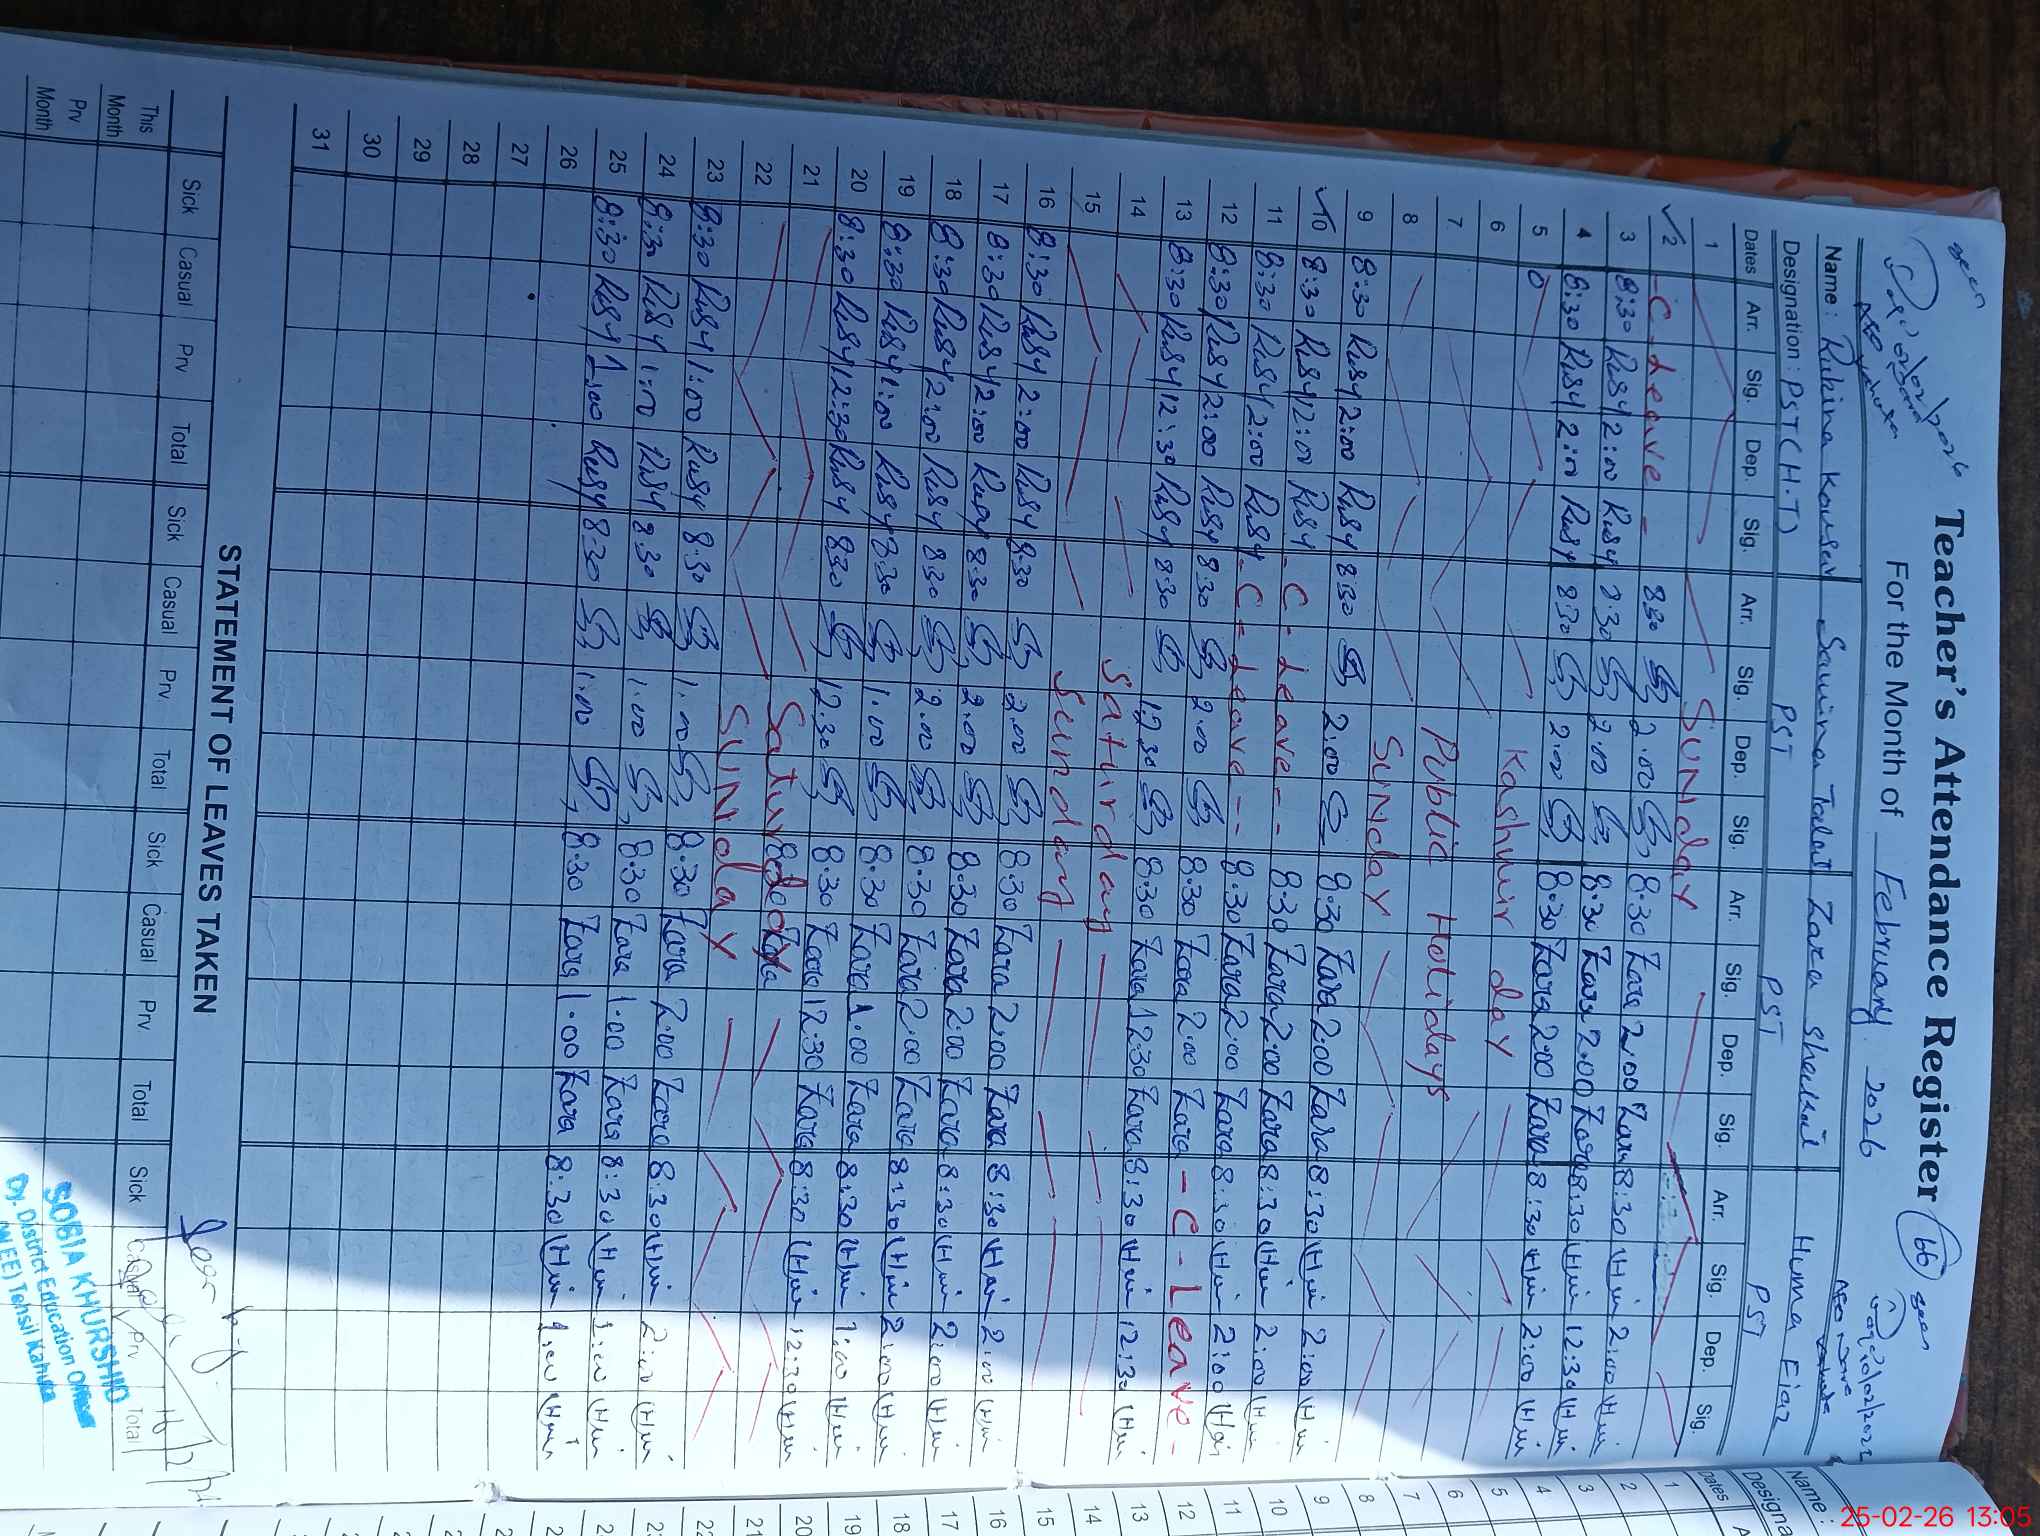 Teacher's Attendance Register 66
For the Month of February. 2026
seen
seen
Name: Rubina Kousar Samina Talat Zara sheikh Huma Ejaz
Designation: PST (H.T) PST PST PST
Dates Arr. Sig. Dep. Sig. Arr. Sig. Dep. Sig. Arr. Sig. Dep. Sig. Arr. Sig. Dep. Sig.
1 SUNday
2 - C - Leave - 8:30 2:00 8:30 Zara 2:00 Zara 8:30 Hui 2:00 Hui
3 8:30 Rusy 2:00 Rusy 8:30 2:00 8:30 Zara 2:00 Zara 8:30 Hui 12:30 Hui
4 8:30 Rusy 2:00 Rusy 8:30 2:00 8:30 Zara 2:00 Zara 8:30 Hui 2:00 Hui
5 Kashmir day
6 Public Holidays
7
8 SUNday
9 8:30 Rusy 2:00 Rusy 8:30 2:00 8:30 Zara 2:00 Zara 8:30 Hui 2:00 Hui
10 8:30 Rusy 2:00 Rusy - C - Leave - - 8:30 Zara 2:00 Zara 8:30 Hui 2:00 Hui
11 8:30 Rusy 2:00 Rusy - C - Leave - - 8:30 Zara 2:00 Zara 8:30 Hui 2:00 Hui
12 8:30 Rusy 2:00 Rusy 8:30 2:00 8:30 Zara 2:00 Zara - C - Leave -
13 8:30 Rusy 12:30 Rusy 8:30 12:30 8:30 Zara 12:30 Zara 8:30 Hui 12:30 Hui
14 Saturday
15 Sunday
16 8:30 Rusy 2:00 Rusy 8:30 2:00 8:30 Zara 2:00 Zara 8:30 Hui 2:00 Hui
17 8:30 Rusy 2:00 Rusy 8:30 2:00 8:30 Zara 2:00 Zara 8:30 Hui 2:00 Hui
18 8:30 Rusy 2:00 Rusy 8:30 2:00 8:30 Zara 2:00 Zara 8:30 Hui 2:00 Hui
19 8:30 Rusy 1:00 Rusy 8:30 1:00 8:30 Zara 1:00 Zara 8:30 Hui 1:00 Hui
20 8:30 Rusy 12:30 Rusy 8:30 12:30 8:30 Zara 12:30 Zara 8:30 Hui 12:30 Hui
21 Saturday
22 SUNday
23 8:30 Rusy 1:00 Rusy 8:30 1:00 8:30 Zara 2:00 Zara 8:30 Hui 2:00 Hui
24 8:30 Rusy 1:00 Rusy 8:30 1:00 8:30 Zara 1:00 Zara 8:30 Hui 1:00 Hui
25 8:30 Rusy 1:00 Rusy 8:30 1:00 8:30 Zara 1:00 Zara 8:30 Hui 1:00 Hui
26
27
28
29
30
31
STATEMENT OF LEAVES TAKEN
Sick Casual Prv Total Sick Casual Prv Total Sick Casual Prv Total Sick Casual Prv Total
This Month
Prv Month
SOBIA KHURSHID
Dy. District Education Officer
(W.EE) Tehsil Kahuta
Name:
Designa
Dates
1
2
3
4
5
6
7
8
9
10
11
12
13
14
15
16
17
18
19
20
21
22
25-02-26 13:05